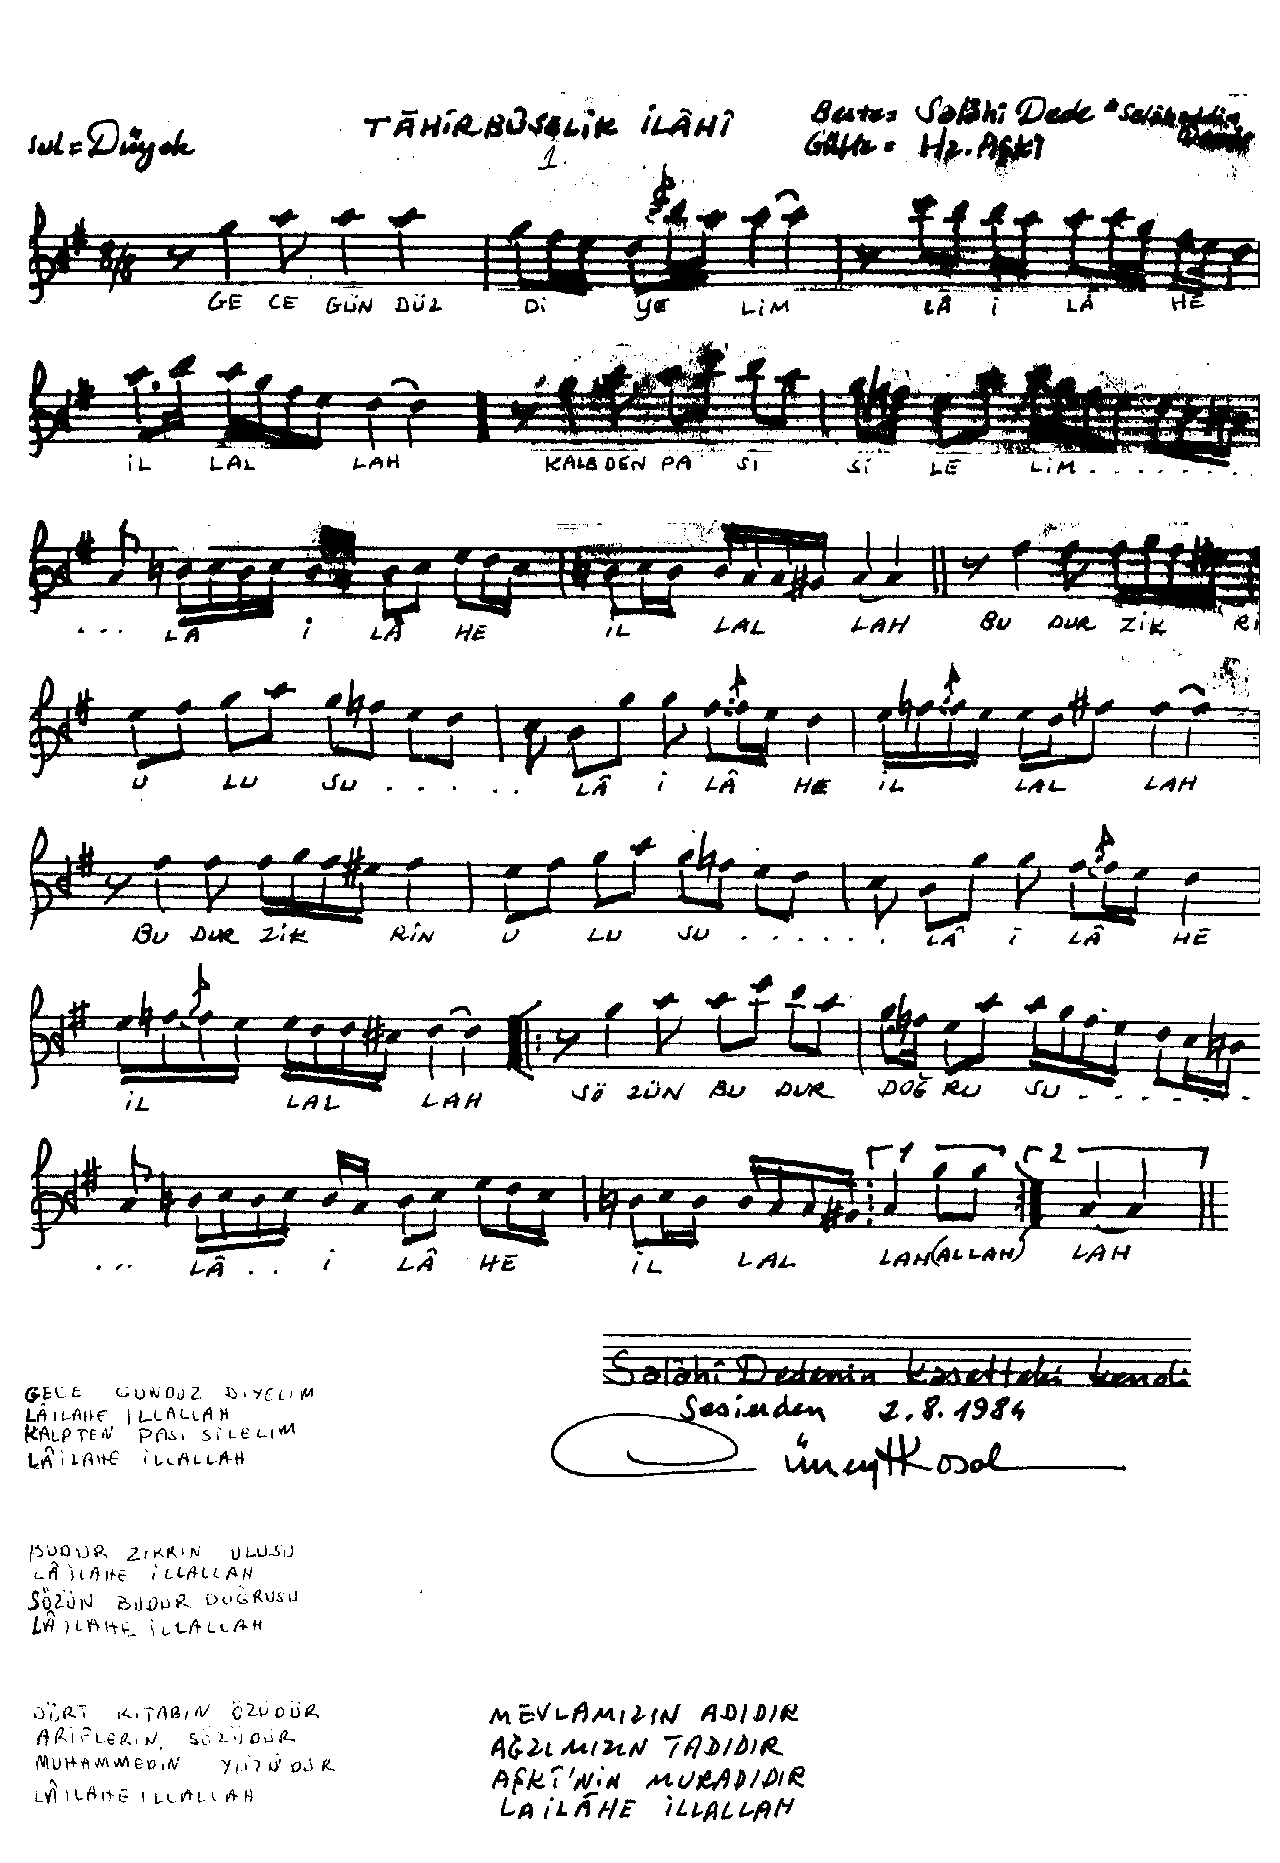 TÂHİRBÛSELİK İLÂHÎ
1.
Usul = Düyek
Beste = Salâhi Dede "Salâheddin
Güfte = Hz. Aşkî
8/8
GE CE GÜN DÜZ Dİ YE LİM LÂ İ LÂ HE
İL LAL LAH KALB DEN PA SI Sİ LE LİM . . . . . . . .
. . . LÂ İ LÂ HE İL LAL LAH BU DUR ZİK Rİ
U LU SU . . . . . . LÂ İ LÂ HE İL LAL LAH
BU DUR ZİK RİN U LU SU . . . . . . LÂ İ LÂ HE
İL LAL LAH SÖ ZÜN BU DUR DOĞ RU SU . . . . . . . .
1 2
. . . LÂ . . İ LÂ HE İL LAL LAH (ALLAH) LAH
Salâhî Dedenin kasetteki kendi
Sesinden 2.8.1984
Cüneyt Kosal
GECE GÜNDÜZ DİYELİM
LÂİLAHE İLLALLAH
KALPTEN PASI SİLELİM
LÂİLAHE İLLALLAH
BUDUR ZİKRİN ULUSU
LÂİLAHE İLLALLAH
SÖZÜN BUDUR DOĞRUSU
LÂİLAHE İLLALLAH
DÖRT KİTABIN ÖZÜDÜR
ARİFLERİN SÖZÜDÜR
MUHAMMEDİN YÜZÜDÜR
LÂİLAHE İLLALLAH
MEVLAMIZIN ADIDIR
AĞZIMIZIN TADIDIR
AŞKÎ'NİN MURADIDIR
LAİLÂHE İLLALLAH